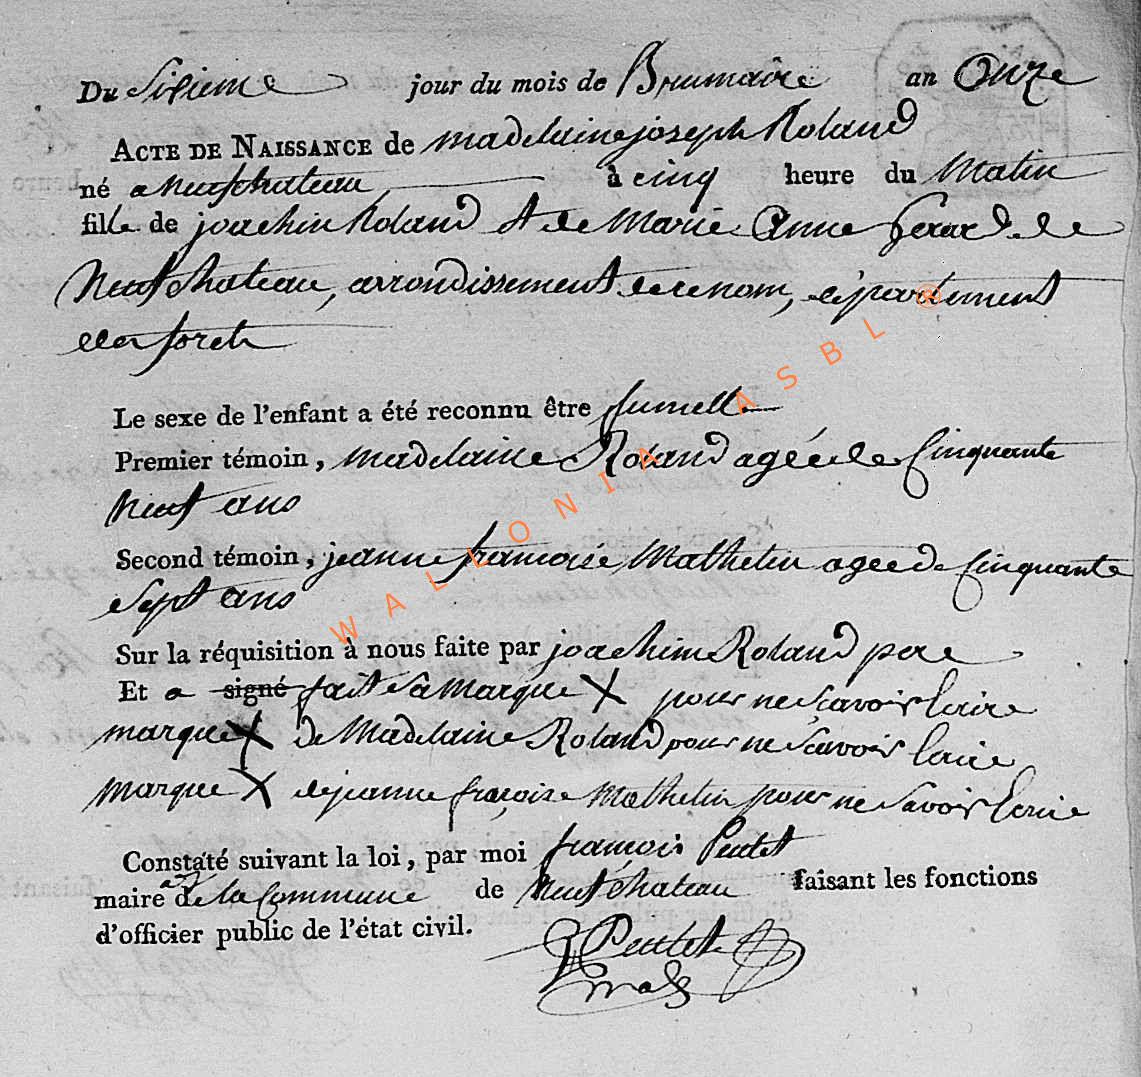 Du Sixieme jour du mois de Brumaire an Onze
ACTE DE NAISSANCE de madelaine joseph Roland
né a neufchateau à cinq heure du Matin
fille de joachin Roland et de Marie Anne Gerard de
Neufchateau, arrondissement de ce nom, departement
des foreth
Le sexe de l'enfant a été reconnu être fumelle
Premier témoin, madelaine Roland agée de Cinquante
neuf ans
Second témoin, jeanne francoise Mathelin agee de Cinquante
Sept ans
Sur la réquisition à nous faite par joachim Roland pere
Et a signé fait Sa Marque X pour ne Scavoir Ecrire
marque X de Madelaine Roland pour ne Scavoir Ecrire
marque X de jeanne françoise Mathelin pour ne Savoir Ecrire
Constaté suivant la loi, par moi francois
maire de la Commune de neufchateau faisant les fonctions
d'officier public de l'état civil.
WALLONIA ASBL ®